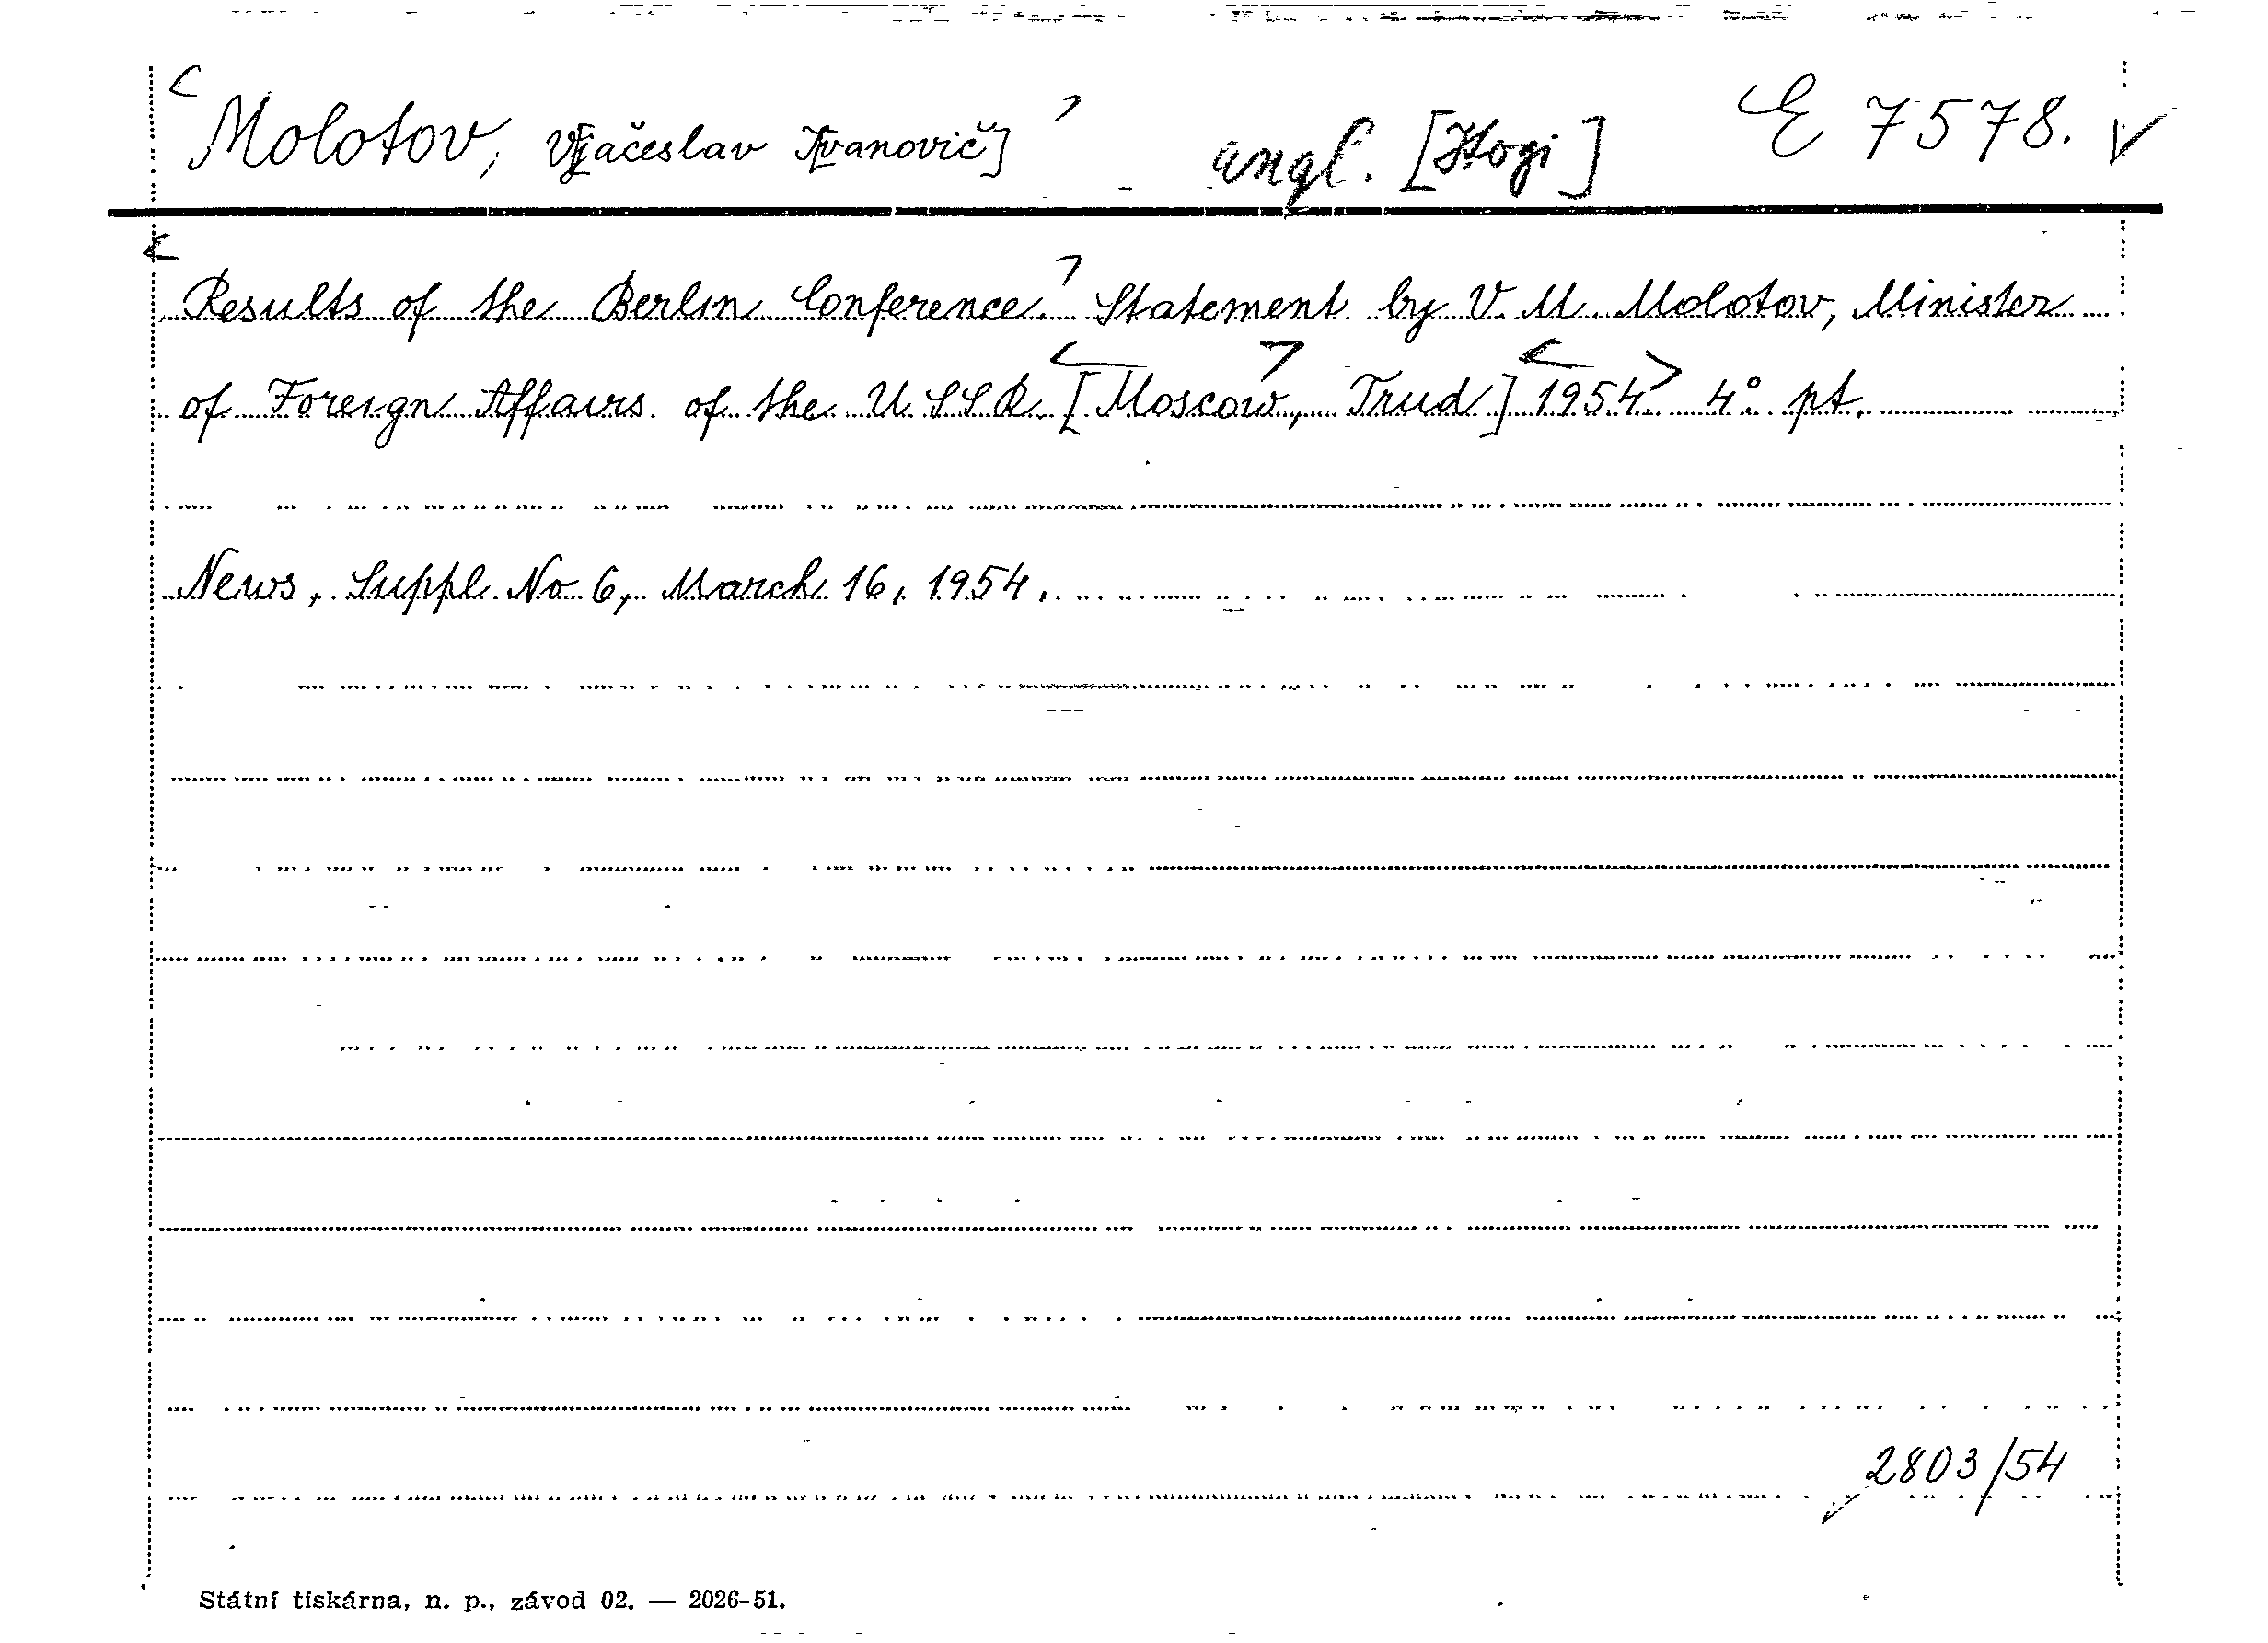 Molotov, V[jačeslav Ivanovič] angl. [Itogi] E 7578.
Results of the Berlin Conference. Statement by V. M. Molotov, Minister
of Foreign Affairs of the USSR. [Moscow, Trud] 1954. 4° pt.
News, Suppl. No 6, March 16, 1954.
2803/54
Státní tiskárna, n. p., závod 02. — 2026-51.